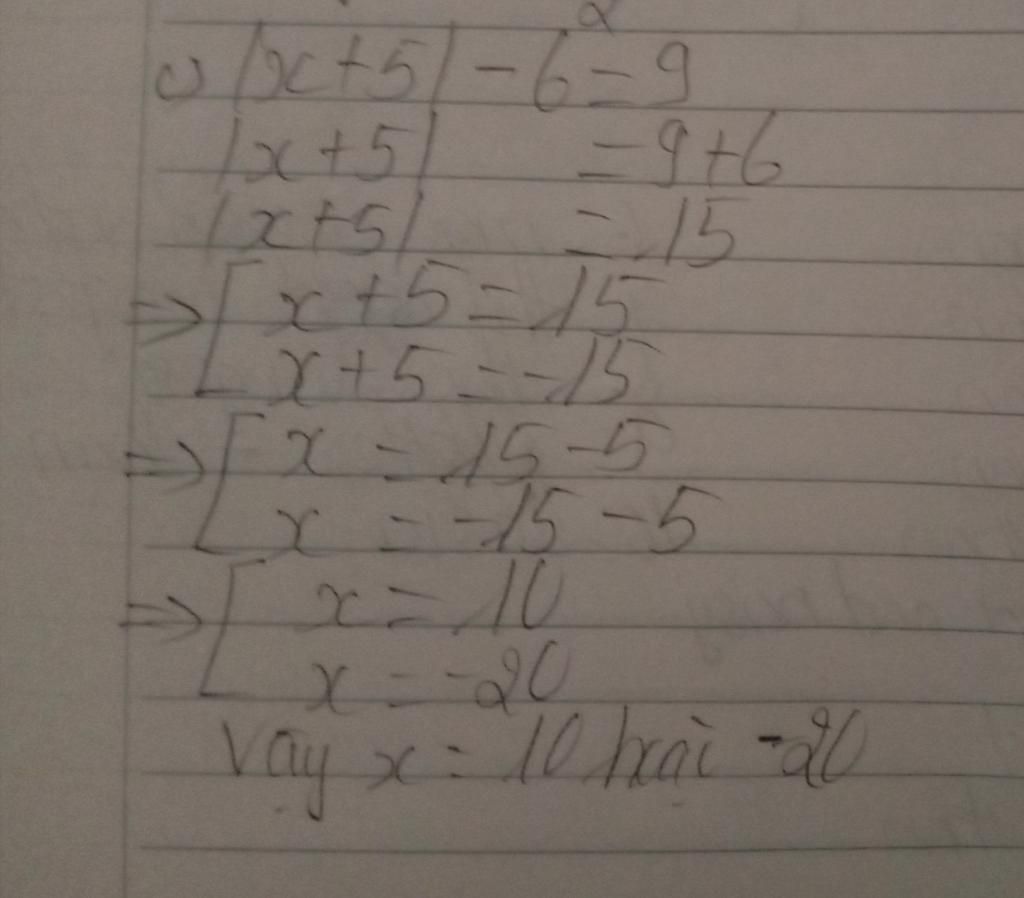 c) |x+5| - 6 = 9
|x+5| = 9+6
|x+5| = 15
⇒ [ x+5 = 15
x+5 = -15
⇒ [ x = 15-5
x = -15-5
⇒ [ x = 10
x = -20
Vậy x = 10 -20